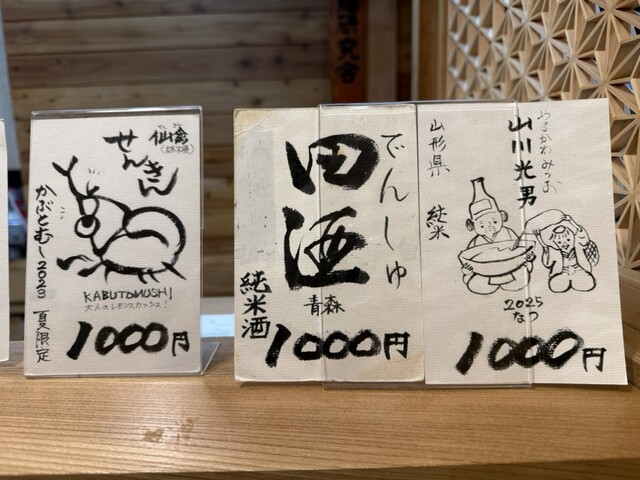 せん きん
仙禽
(栃木県)
せんきん
かぶとむし2023 夏限定
KABUTOMUSHI
大人のレモンスカッシュ!
1000円
でんしゅ
田酒
青森
純米酒
1000円
やまかわみつお
山川光男
山形県 純米
2025
なつ
1000円